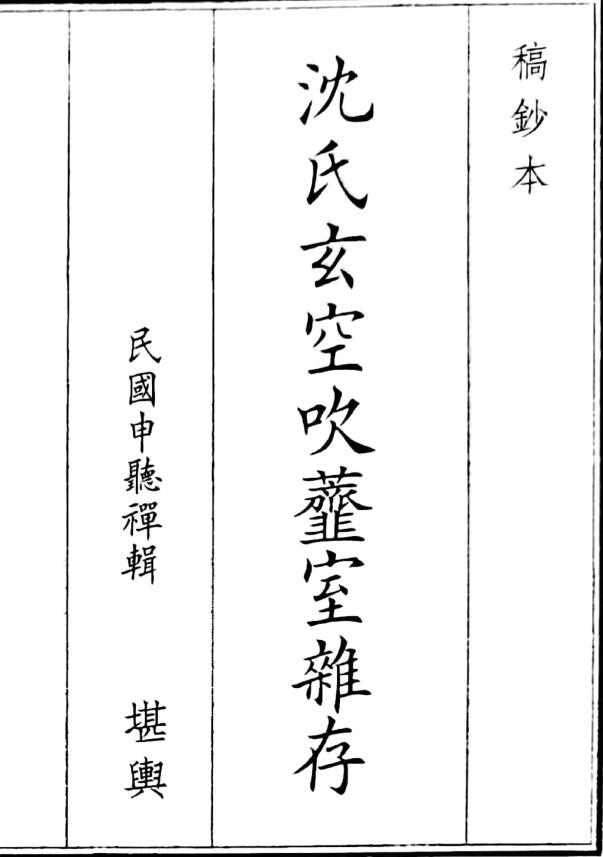 稿鈔本
沈氏玄空吹虀室雜存
民國申聽禪輯 堪輿